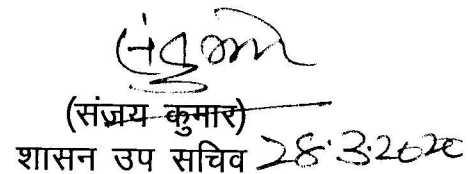 (संजय कुमार)
शासन उप सचिव 28.3.2020